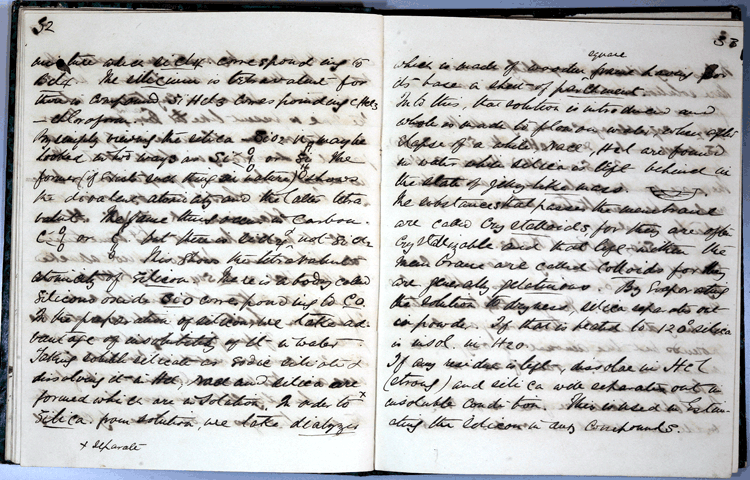 32
mixture where SiCl4 corresponding to
CCl4. The silicium is tetravalent for
there is compound SiHCl3 corresponding CHCl3
— chloroform.
By simply viewing the silica SiO2 may be
looked in two ways as Si O O or the
former (if such thing in nature) shows
the divalent atomicity and the latter tetra
valent. The same thing occurs in Carbon.
C O O or but there is not SiO2
This shows the tetravalent
atomicity of Silicon. There is a body called
Silicon oxide SiO corresponding to CO.
In the preparation of silicon we take ad-
vantage of insolubility of it in water
Taking soluble silicate or sodic silicate &
dissolving it in HCl, NaCl and silica are
formed which are in solution. In order to x
silica from solution we take dialyzer
x separate
33
square
which is made of wooden frame having for
its base a sheet of parchment.
Into this, the solution is introduced and
whole is made to float on water, when after
elapse of a while NaCl, HCl are found
in water while silica is left behind in
the state of jelly like mass.
The substances that passes the membrane
are called Crystalloids, for they are often
crystallizable and that left within the
membrane are called Colloids for they
are generally gelatinous. By Evaporating
the solution to dryness, silica separates out
in powder. If this is heated to 120° silica
is insol. in H2O.
If any residue is left, dissolve in HCl
(strong) and silica wde separate out in
insoluble condition. This is used in Estim-
ating the Silicon in any compounds.